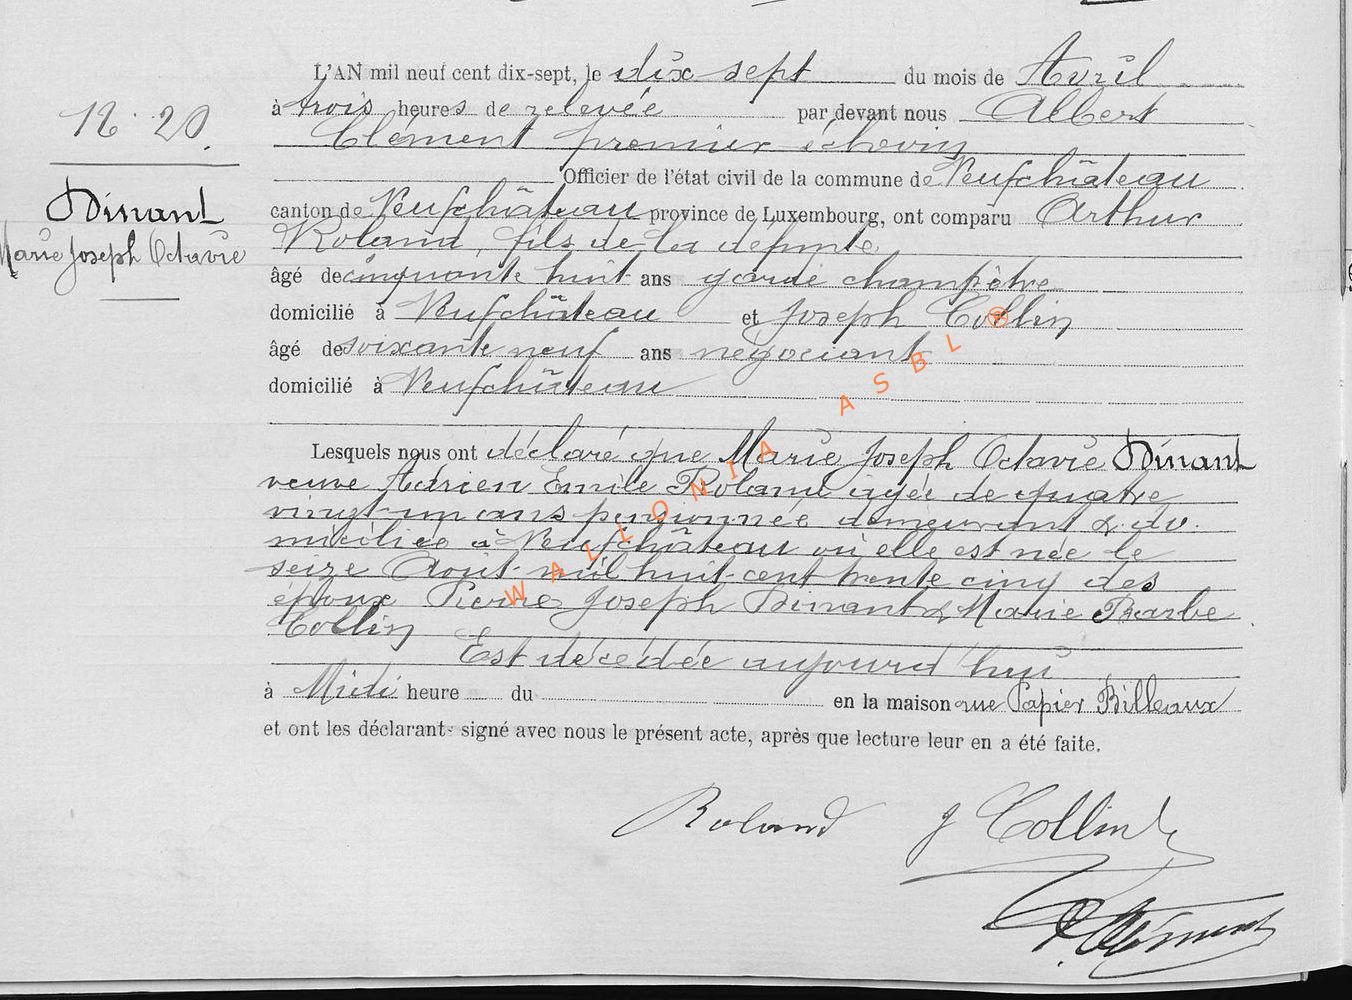 L'AN mil neuf cent dix-sept, le dix sept du mois de Avril
à trois heures de relevée par devant nous Albert
Clément premier échevin
Officier de l'état civil de la commune de Neufchâteau
canton de Neufchâteau province de Luxembourg, ont comparu Arthur
Roland, fils de la défunte
âgé de cinquante huit ans garde champêtre
domicilié à Neufchâteau et Joseph Collin
âgé de soixante neuf ans négociant
domicilié à Neufchâteau
Nº 20.
Dinant
Marie Joseph Octavie
Lesquels nous ont déclaré que Marie Joseph Octavie Dinant
veuve Adrien Emile Roland âgée de quatre
vingt-un ans pensionnée demeurant & do
miciliée à Neufchâteau où elle est née le
seize Août mil huit-cent trente cinq des
époux Pierre Joseph Dinant & Marie Barbe
Collin
Est décédée aujourd'hui
à Midi heure du en la maison rue Papier Billeaux
et ont les déclarants signé avec nous le présent acte, après que lecture leur en a été faite.
Roland J Collin
A. Clément
WALLONIA ASBL ®